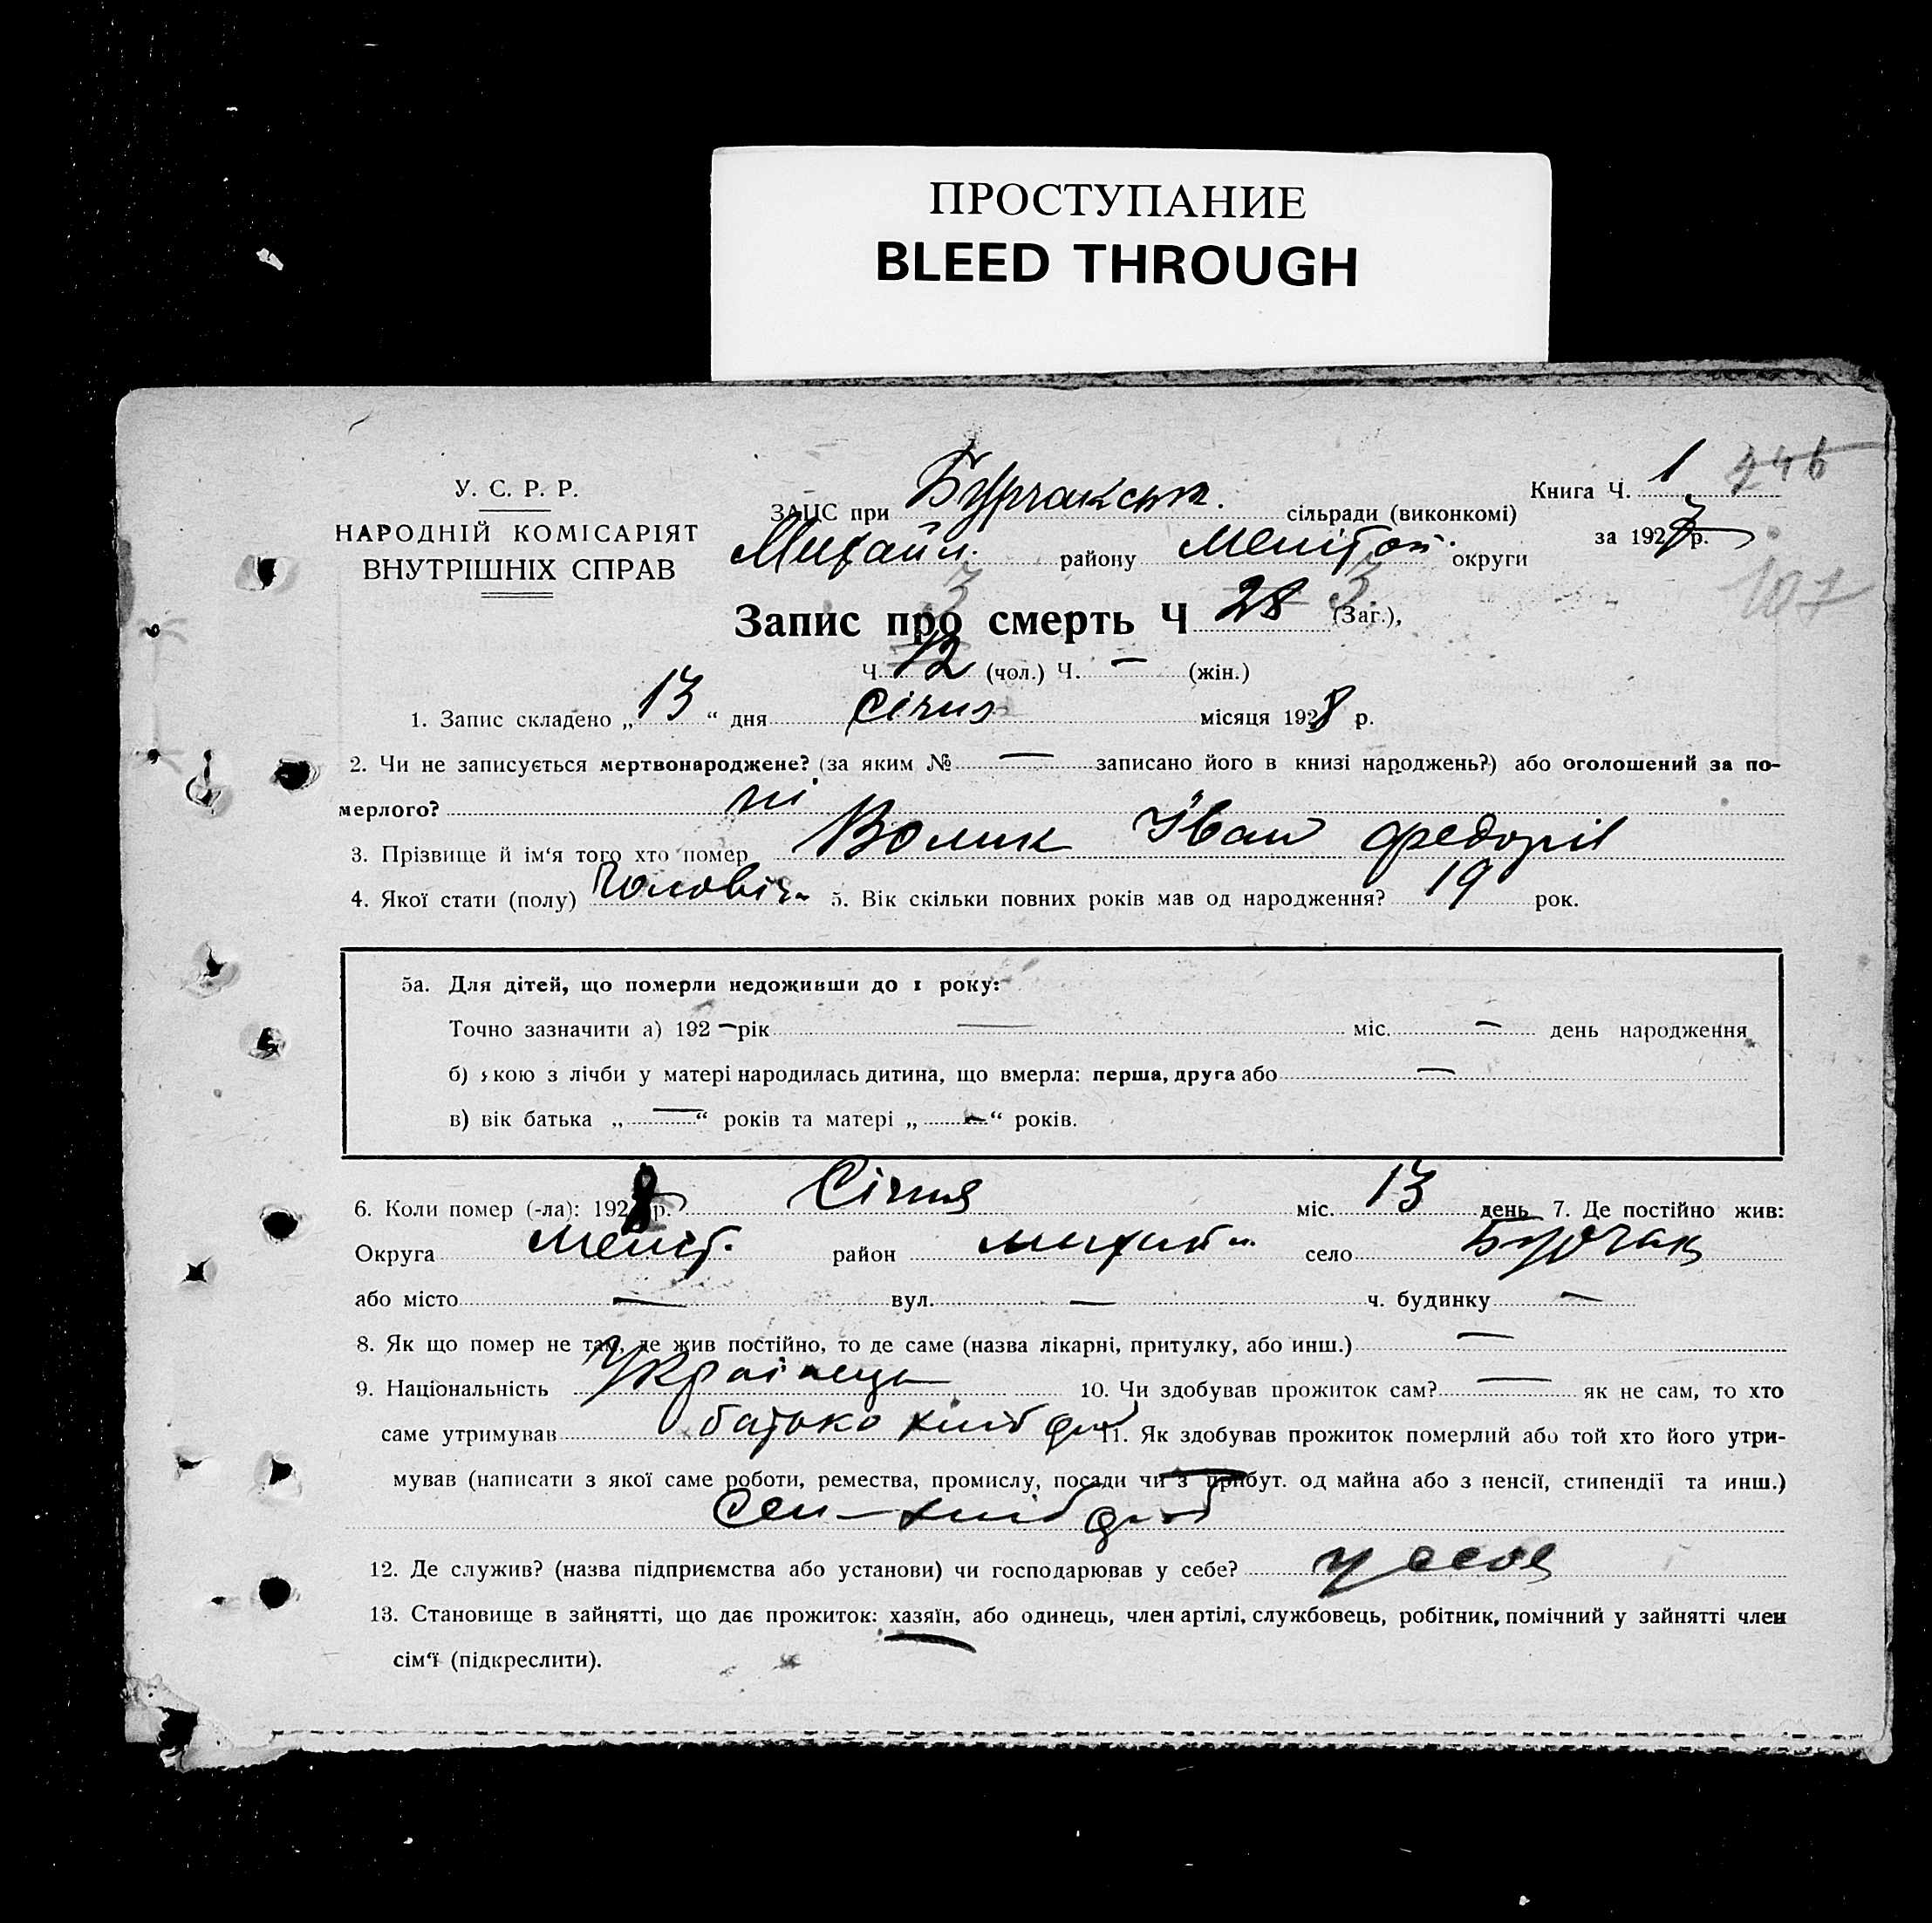 ПРОСТУПАНИЕ
BLEED THROUGH
У. С. Р. Р.
НАРОДНІЙ КОМІСАРІЯТ
ВНУТРІШНІХ СПРАВ
ЗАЦС при Бурчакськ. сільради (виконкомі)
Книга Ч. 1 246
Михайл. району Меліто п. округи
за 1927 р.
107
3 3
Запис про смерть Ч 28 (Заг.),
Ч. 12 (чол.) Ч. — (жін.)
1. Запис складено „ 13 “ дня січня місяця 1928 р.
2. Чи не записується мертвонароджене? (за яким № — записано його в книзі народжень?) або оголошений за по-
мерлого? ні
3. Прізвище й ім‘я того хто помер Волик Іван Федорів
4. Якої стати (полу) Чоловіч. 5. Вік скільки повних років мав од народження? 19 рок.
5а. Для дітей, що померли недоживши до 1 року:
Точно зазначити а) 192 — рік — міс. — день народження
б) якою з лічби у матері народилась дитина, що вмерла: перша, друга або —
в) вік батька „ — “ років та матері „ — “ років.
6. Коли помер (-ла): 1928 р. Січня міс. 13 день 7. Де постійно жив:
Округа Меліт. район михайл. село Бурчак
або місто — вул. — ч. будинку —
8. Як що помер не там, де жив постійно, то де саме (назва лікарні, притулку, або инш.) —
9. Національність Українець 10. Чи здобував прожиток сам? — як не сам, то хто
саме утримував батько хліб 11. Як здобував прожиток померлий або той хто його утри-
мував (написати з якої саме роботи, ремества, промислу, посади чи з прибут. од майна або з пенсії, стипендії та инш.)
Сел — хліб
12. Де служив? (назва підприємства або установи) чи господарював у себе? у себе
13. Становище в зайнятті, що дає прожиток: хазяїн, або одинець, член артілі, службовець, робітник, помічний у зайнятті член
сім‘ї (підкреслити).